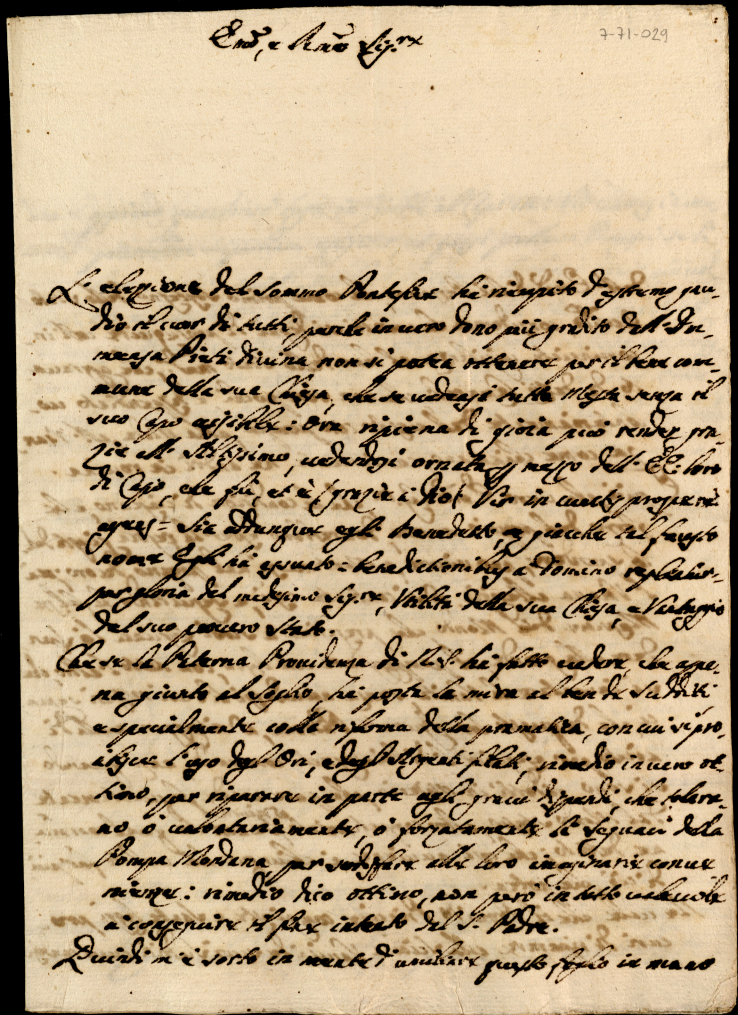 Em̃o, e Rm̃o Sig.re
7-71-029
L'elezione del Sommo Pontefice hà riempito d'estremo gau-
dio il cuor di tutti, perche in vero dono più gradito dell'Im-
mensa Pietà divina non si potea ottenere per il bene com-
mune della sua Chiesa, che se vedeasi tutta mesta senza il
suo Capo visibile: Ora ripiena di gioia può render gra-
zie all'Altissimo, vedendosi ornata p mezzo dell'EE: loro
di Capo, che fù, et è (grazie à Dio) Vir in cunctis prospere
agens = Sia adunque egli Benedetto, e giacche tal fausto
nome Egli hà assunto = benedictionibus a Domino repleatur =
per gloria del medesimo Sig.re, Utilità della sua Chiesa, e Vantaggio
del suo povero Stato.
Che se la Paterna Providenza di N. S. hà fatto vedere, che appe-
na giunto al Soglio, hà posta la mira al ben de Sudditi
e specialmente colla riforma della pramatica, con cui si pro-
ibisce l'uso degl'Ori, e degl'Argenti filati, rimedio in vero ot-
timo, per riparare in parte agli gravi dispendi, che tolera-
no, ò volontariamente, ò forzatamente li Seguaci della
Pompa Mondana per sodisfare alle loro imaginarie conve
nienze: rimedio dico ottimo, non però in tutto valevole
a conseguire il fine intento del S. Padre.
Quindi m'è sorto in mente d'umiliare questo foglio in mano